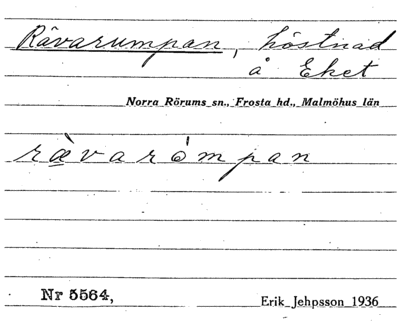 Rävarumpan, höstnad
å Eket
Norra Rörums sn., Frosta hd., Malmöhus län
rævarómpan
Nr 5564,
Erik Jehpsson 1936